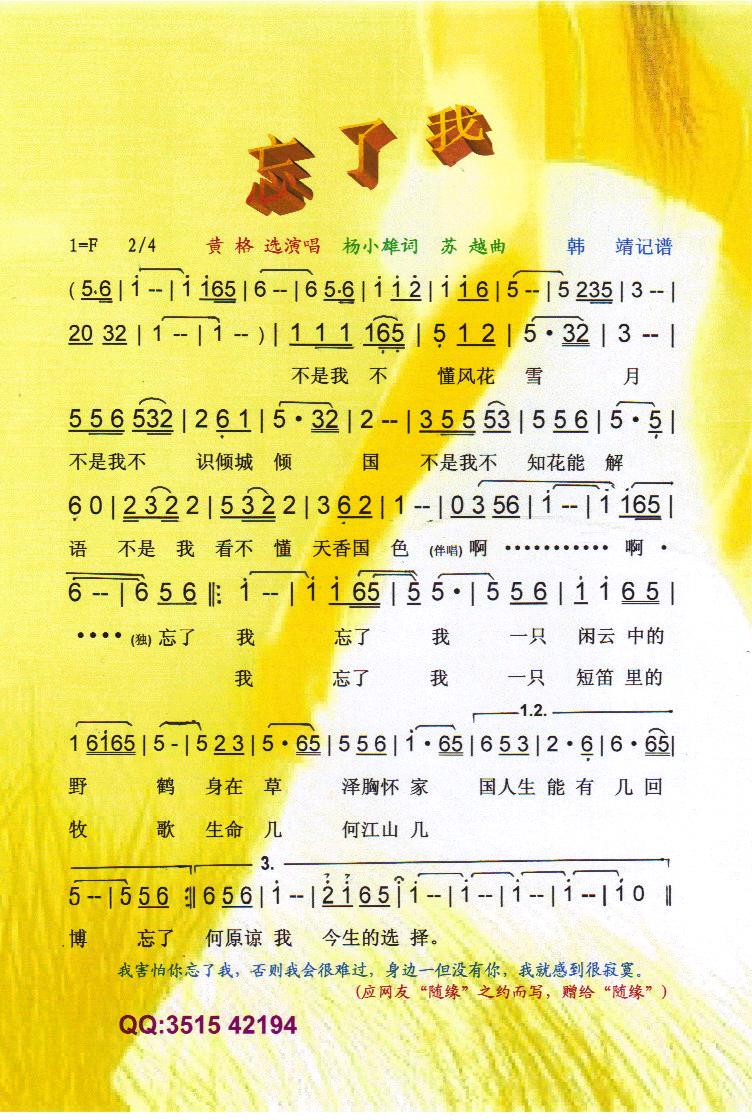 忘了我
1=F 2/4 黄 格 选演唱 杨小雄词 苏 越曲 韩 靖记谱
( 5·6 | 1 -- | 1 165 | 6 -- | 6 5·6 | 1 1 2 | 1 1 6 | 5 -- | 5 235 | 3 -- |
20 32 | 1 -- | 1 -- ) | 1 1 1 165 | 5 1 2 | 5 · 32 | 3 -- |
不是我 不 懂风花 雪 月
5 5 6 532 | 2 6 1 | 5 · 32 | 2 -- | 3 5 5 53 | 5 5 6 | 5 · 5 |
不是我不 识倾城 倾 国 不是我不 知花能 解
6 0 | 2 3 2 2 | 5 32 2 | 3 6 2 | 1 -- | 0 3 56 | 1 -- | 1 165 |
语 不是 我 看不 懂 天香国 色 (伴唱) 啊 ··········· 啊 ·
6 -- | 6 5 6 |: 1 -- | 1 1 65 | 5 5· | 5 5 6 | 1 1 6 5 |
···· (独) 忘了 我 忘了 我 一只 闲云 中的
我 忘了 我 一只 短笛 里的
1.2.
1 6165 | 5 - | 5 2 3 | 5 · 65 | 5 5 6 | 1 · 65 | 6 5 3 | 2 · 6 | 6 · 65 |
野 鹤 身在 草 泽胸怀 家 国人生 能 有 几 回
牧 歌 生命 几 何江山 几
3.
5 -- | 5 5 6 :| 6 5 6 | 1 -- | 2 1 6 5 | 1 -- | 1 -- | 1 -- | 1 0 ‖
博 忘了 何原谅 我 今生的 选 择。
我害怕你忘了我，否则我会很难过，身边一但没有你，我就感到很寂寞。
(应网友“随缘”之约而写，赠给“随缘”)
QQ:3515 42194